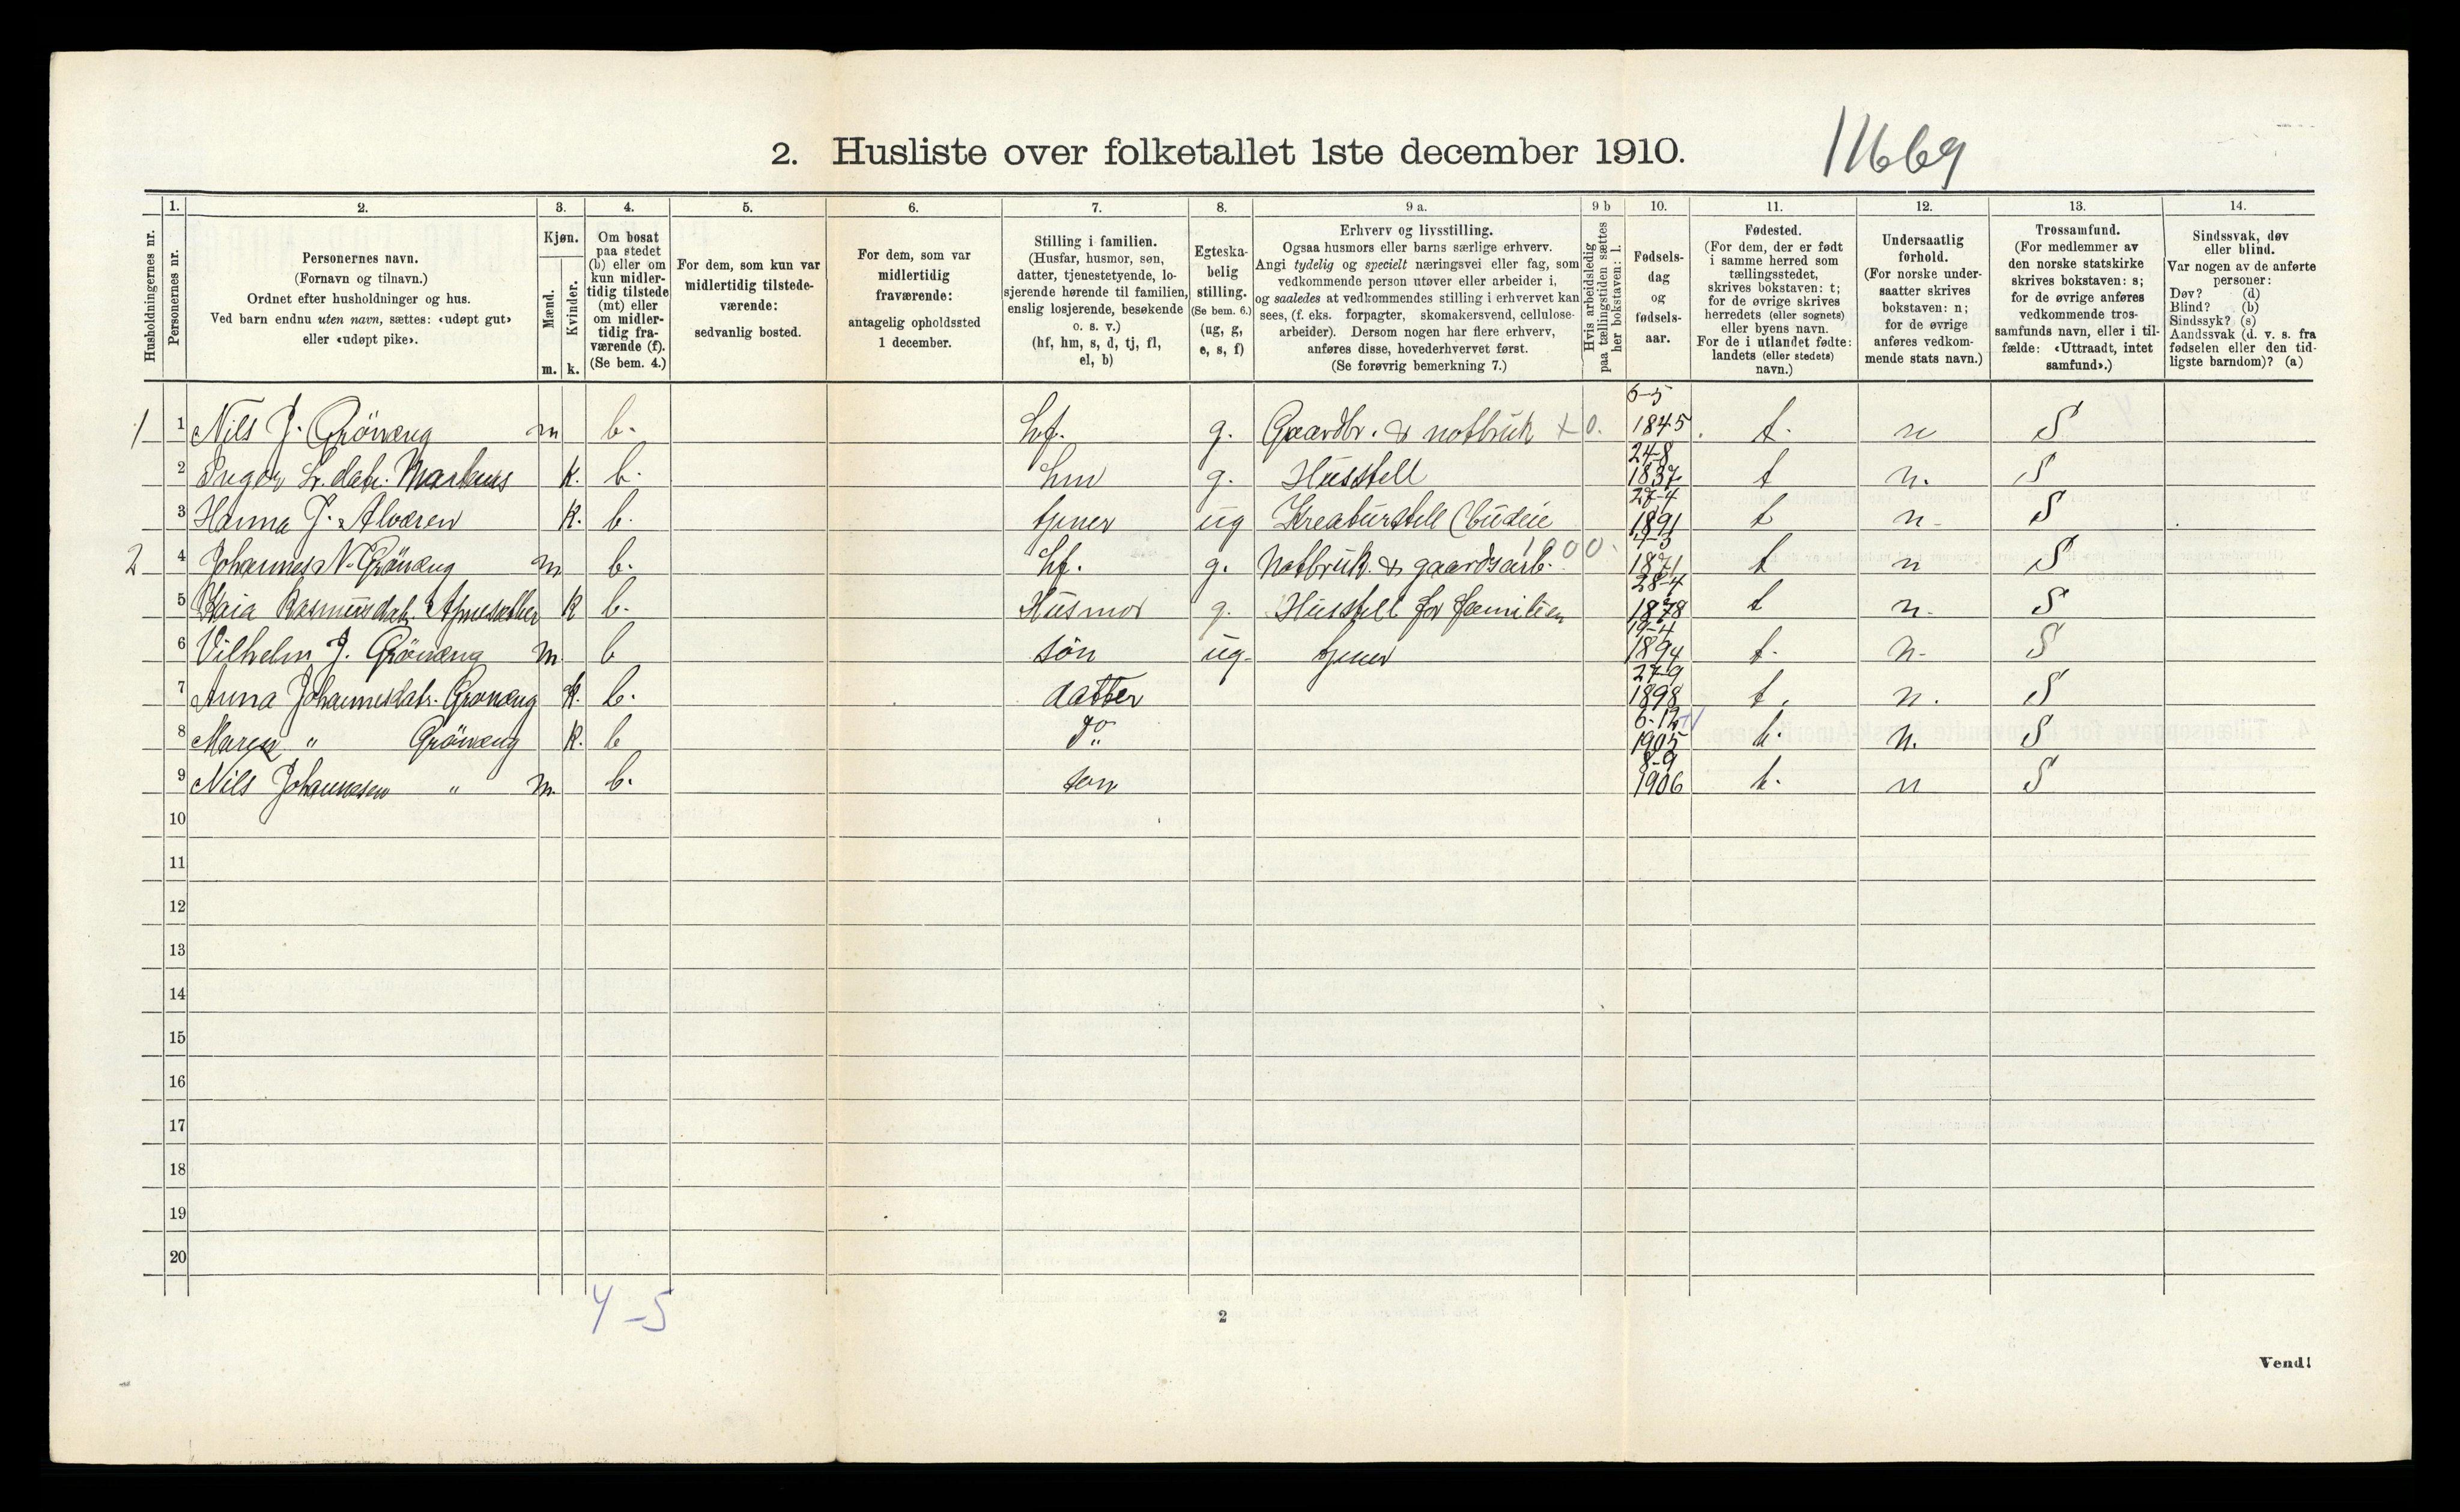 2. Husliste over folketallet 1ste december 1910. 11669
1. 2. 3. 4. 5. 6. 7. 8. 9 a. 9 b 10. 11. 12. 13. 14.
Husholdningernes nr.
Personernes nr.
Personernes navn.
(Fornavn og tilnavn.)
Ordnet efter husholdninger og hus.
Ved barn endnu uten navn, sættes: «udøpt gut»
eller «udøpt pike».
Kjøn.
Mænd.
Kvinder.
m. k.
Om bosat
paa stedet
(b) eller om
kun midler-
tidig tilstede
(mt) eller
om midler-
tidig fra-
værende (f).
(Se bem. 4.)
For dem, som kun var
midlertidig tilstede-
værende:
sedvanlig bosted.
For dem, som var
midlertidig
fraværende:
antagelig opholdssted
1 december.
Stilling i familien.
(Husfar, husmor, søn,
datter, tjenestetyende, lo-
sjerende hørende til familien,
enslig losjerende, besøkende
o. s. v.)
(hf, hm, s, d, tj, fl,
el, b)
Egteska-
belig
stilling.
(Se bem. 6.)
(ug, g,
e, s, f)
Erhverv og livsstilling.
Ogsaa husmors eller barns særlige erhverv.
Angi tydelig og specielt næringsvei eller fag, som
vedkommende person utøver eller arbeider i,
og saaledes at vedkommendes stilling i erhvervet kan
sees, (f. eks. forpagter, skomakersvend, cellulose-
arbeider). Dersom nogen har flere erhverv,
anføres disse, hovederhvervet først.
(Se forøvrig bemerkning 7.)
Hvis arbeidsledig
paa tællingstiden sættes
her bokstaven: l.
Fødsels-
dag
og
fødsels-
aar.
Fødested.
(For dem, der er født
i samme herred som
tællingsstedet,
skrives bokstaven: t;
for de øvrige skrives
herredets (eller sognets)
eller byens navn.
For de i utlandet fødte:
landets (eller stedets)
navn.)
Undersaatlig
forhold.
(For norske under-
saatter skrives
bokstaven: n;
for de øvrige
anføres vedkom-
mende stats navn.)
Trossamfund.
(For medlemmer av
den norske statskirke
skrives bokstaven: s;
for de øvrige anføres
vedkommende tros-
samfunds navn, eller i til-
fælde: «Uttraadt, intet
samfund».)
Sindssvak, døv
eller blind.
Var nogen av de anførte
personer:
Døv? (d)
Blind? (b)
Sindssyk? (s)
Aandssvak (d. v. s. fra
fødselen eller den tid-
ligste barndom)? (a)
1 1 Nils J. Grönæng m b. hf. g. Gaardbr. & notbruk x 0. 6-5 1845 t. n S
2 Inger datr. k. b. hm g. Husstell 24-8 1837 t n. S
3 Hanna J. Alværen k. b. tjener ug Kreaturstell (budeie 27-4 1891 t n- S
2 4 Johannes N. Grönæng m b. hf. g. Notbruk & gaardsarb. 1900. 1871 t n S
5 Kaia Rasmusdatr. k b. Husmor g. Husstell for familien 28-4 1878 t n- S
6 Vilhelm J. Grönæng m. b søn ug- tjener 19-4 1894 t. n- S
7 Anna Johannesdatr. Grönæng k. b. datter 27-9 1898 t. n. S
8 Maren " Grönæng k. b do 6-12 1905 t. n. S
9 Nils Johannesen " m. b. søn 8-9 1906 t. n S
10
11
12
13
14
15
16
17
18
19
20
4-5
2
Vend!